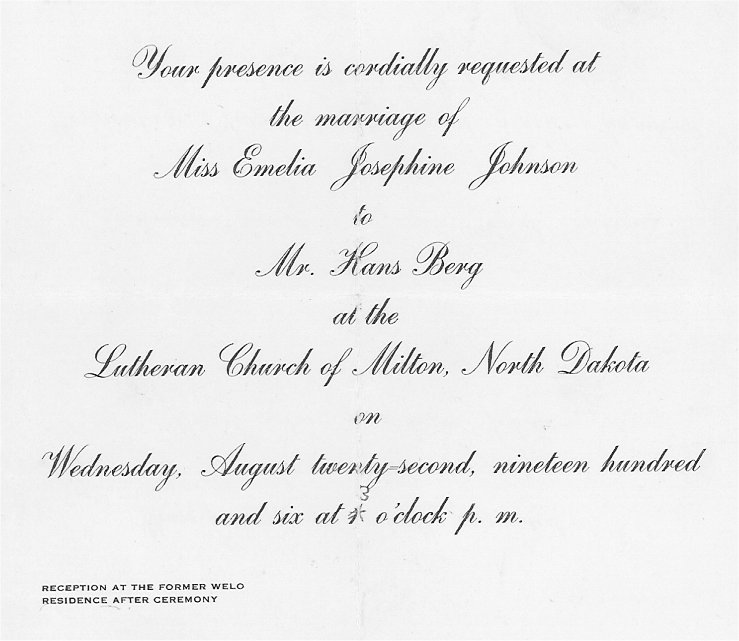 Your presence is cordially requested at
the marriage of
Miss Emelia Josephine Johnson
to
Mr. Hans Berg
at the
Lutheran Church of Milton, North Dakota
on
Wednesday, August twenty-second, nineteen hundred
3
and six at o'clock p. m.
RECEPTION AT THE FORMER WELO
RESIDENCE AFTER CEREMONY